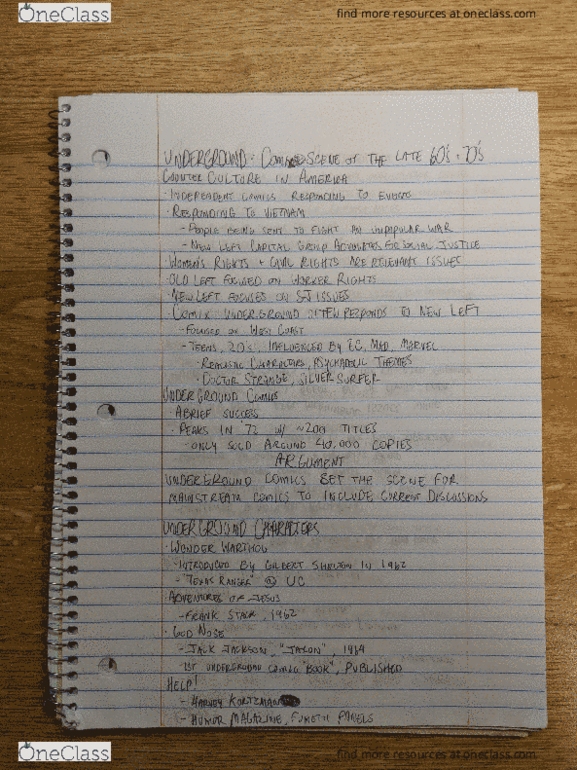 OneClass
find more resources at oneclass.com
UNDERGROUND: SCENE OF THE LATE 60's + 70's
COUNTER CULTURE IN AMERICA
· INDEPENDENT COMICS RESPONDING TO EVENTS
· RESPONDING TO VIETNAM
- PEOPLE BEING SENT TO FIGHT AN UNPOPULAR WAR
- NEW LEFT CAPITAL GROUP ADVOCATES FOR SOCIAL JUSTICE
· WOMEN'S RIGHTS + CIVIL RIGHTS ARE RELEVANT ISSUES
· OLD LEFT FOCUSED ON WORKER RIGHTS
· NEW LEFT FOCUSES ON SJ ISSUES
· COMIX UNDERGROUND OFTEN RESPONDS TO NEW LEFT
- FOCUSED ON WEST COAST
- TEENS, 20's, INFLUENCED BY EC, MAD, MARVEL
· REALISTIC CHARACTERS, PSYCHADELIC THEMES
· DOCTOR STRANGE, SILVER SURFER
UNDERGROUND COMICS
· A BRIEF SUCCESS
· PEAKS IN '72 W/ ~200 TITLES
- ONLY SOLD AROUND 40,000 COPIES
ARGUMENT
UNDERGROUND COMICS SET THE SCENE FOR
MAINSTREAM COMICS TO INCLUDE CURRENT DISCUSSIONS
UNDERGROUND CHARACTERS
· WONDER WARTHOG
- INTRODUCED BY GILBERT SHELTON IN 1962
- "TEXAS RANGER" @ UC
· ADVENTURES OF JESUS
- FRANK STACK, 1962
· GOD NOSE
- JACK JACKSON, "JAXON", 1964
- 1ST UNDERGROUND COMIC "BOOK", PUBLISHED
HELP!
- HARVEY KURTZMAN
- HUMOR MAGAZINE, FUMETTI PANELS
OneClass
find more resources at oneclass.com